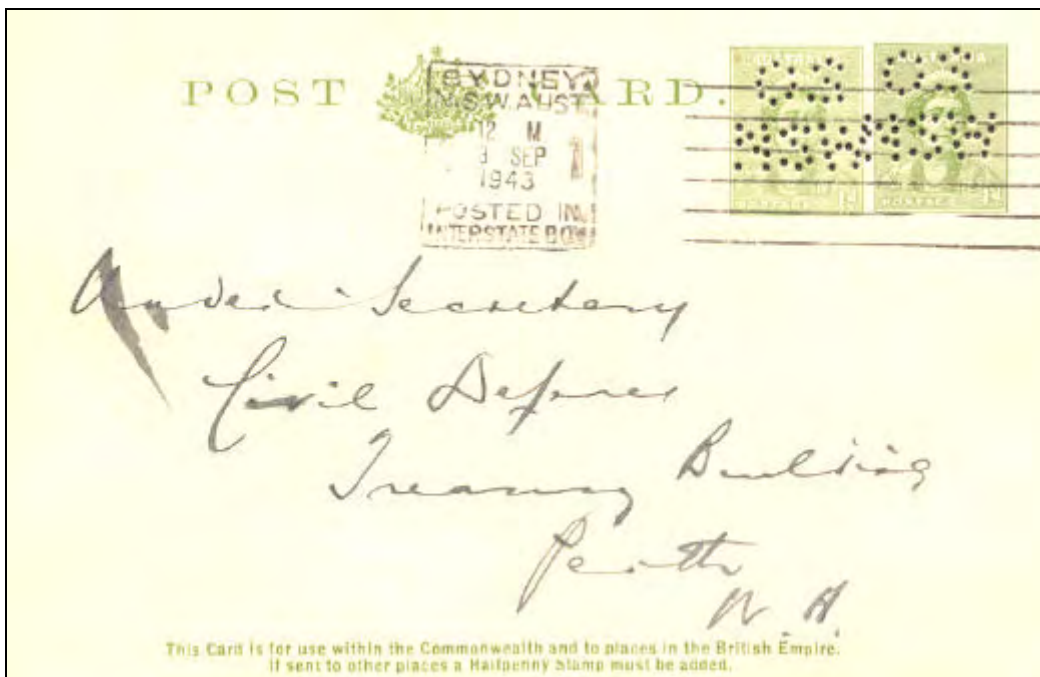 POST CARD.
SYDNEY
N.S.W. AUST
12 M
SEP
1943
POSTED IN
INTERSTATE BOX
AUSTRALIA
OS OS
NSW NSW
Under Secretary
Civil Defence
Treasury Building
Perth
W. A.
This Card is for use within the Commonwealth and to places in the British Empire.
If sent to other places a Halfpenny Stamp must be added.